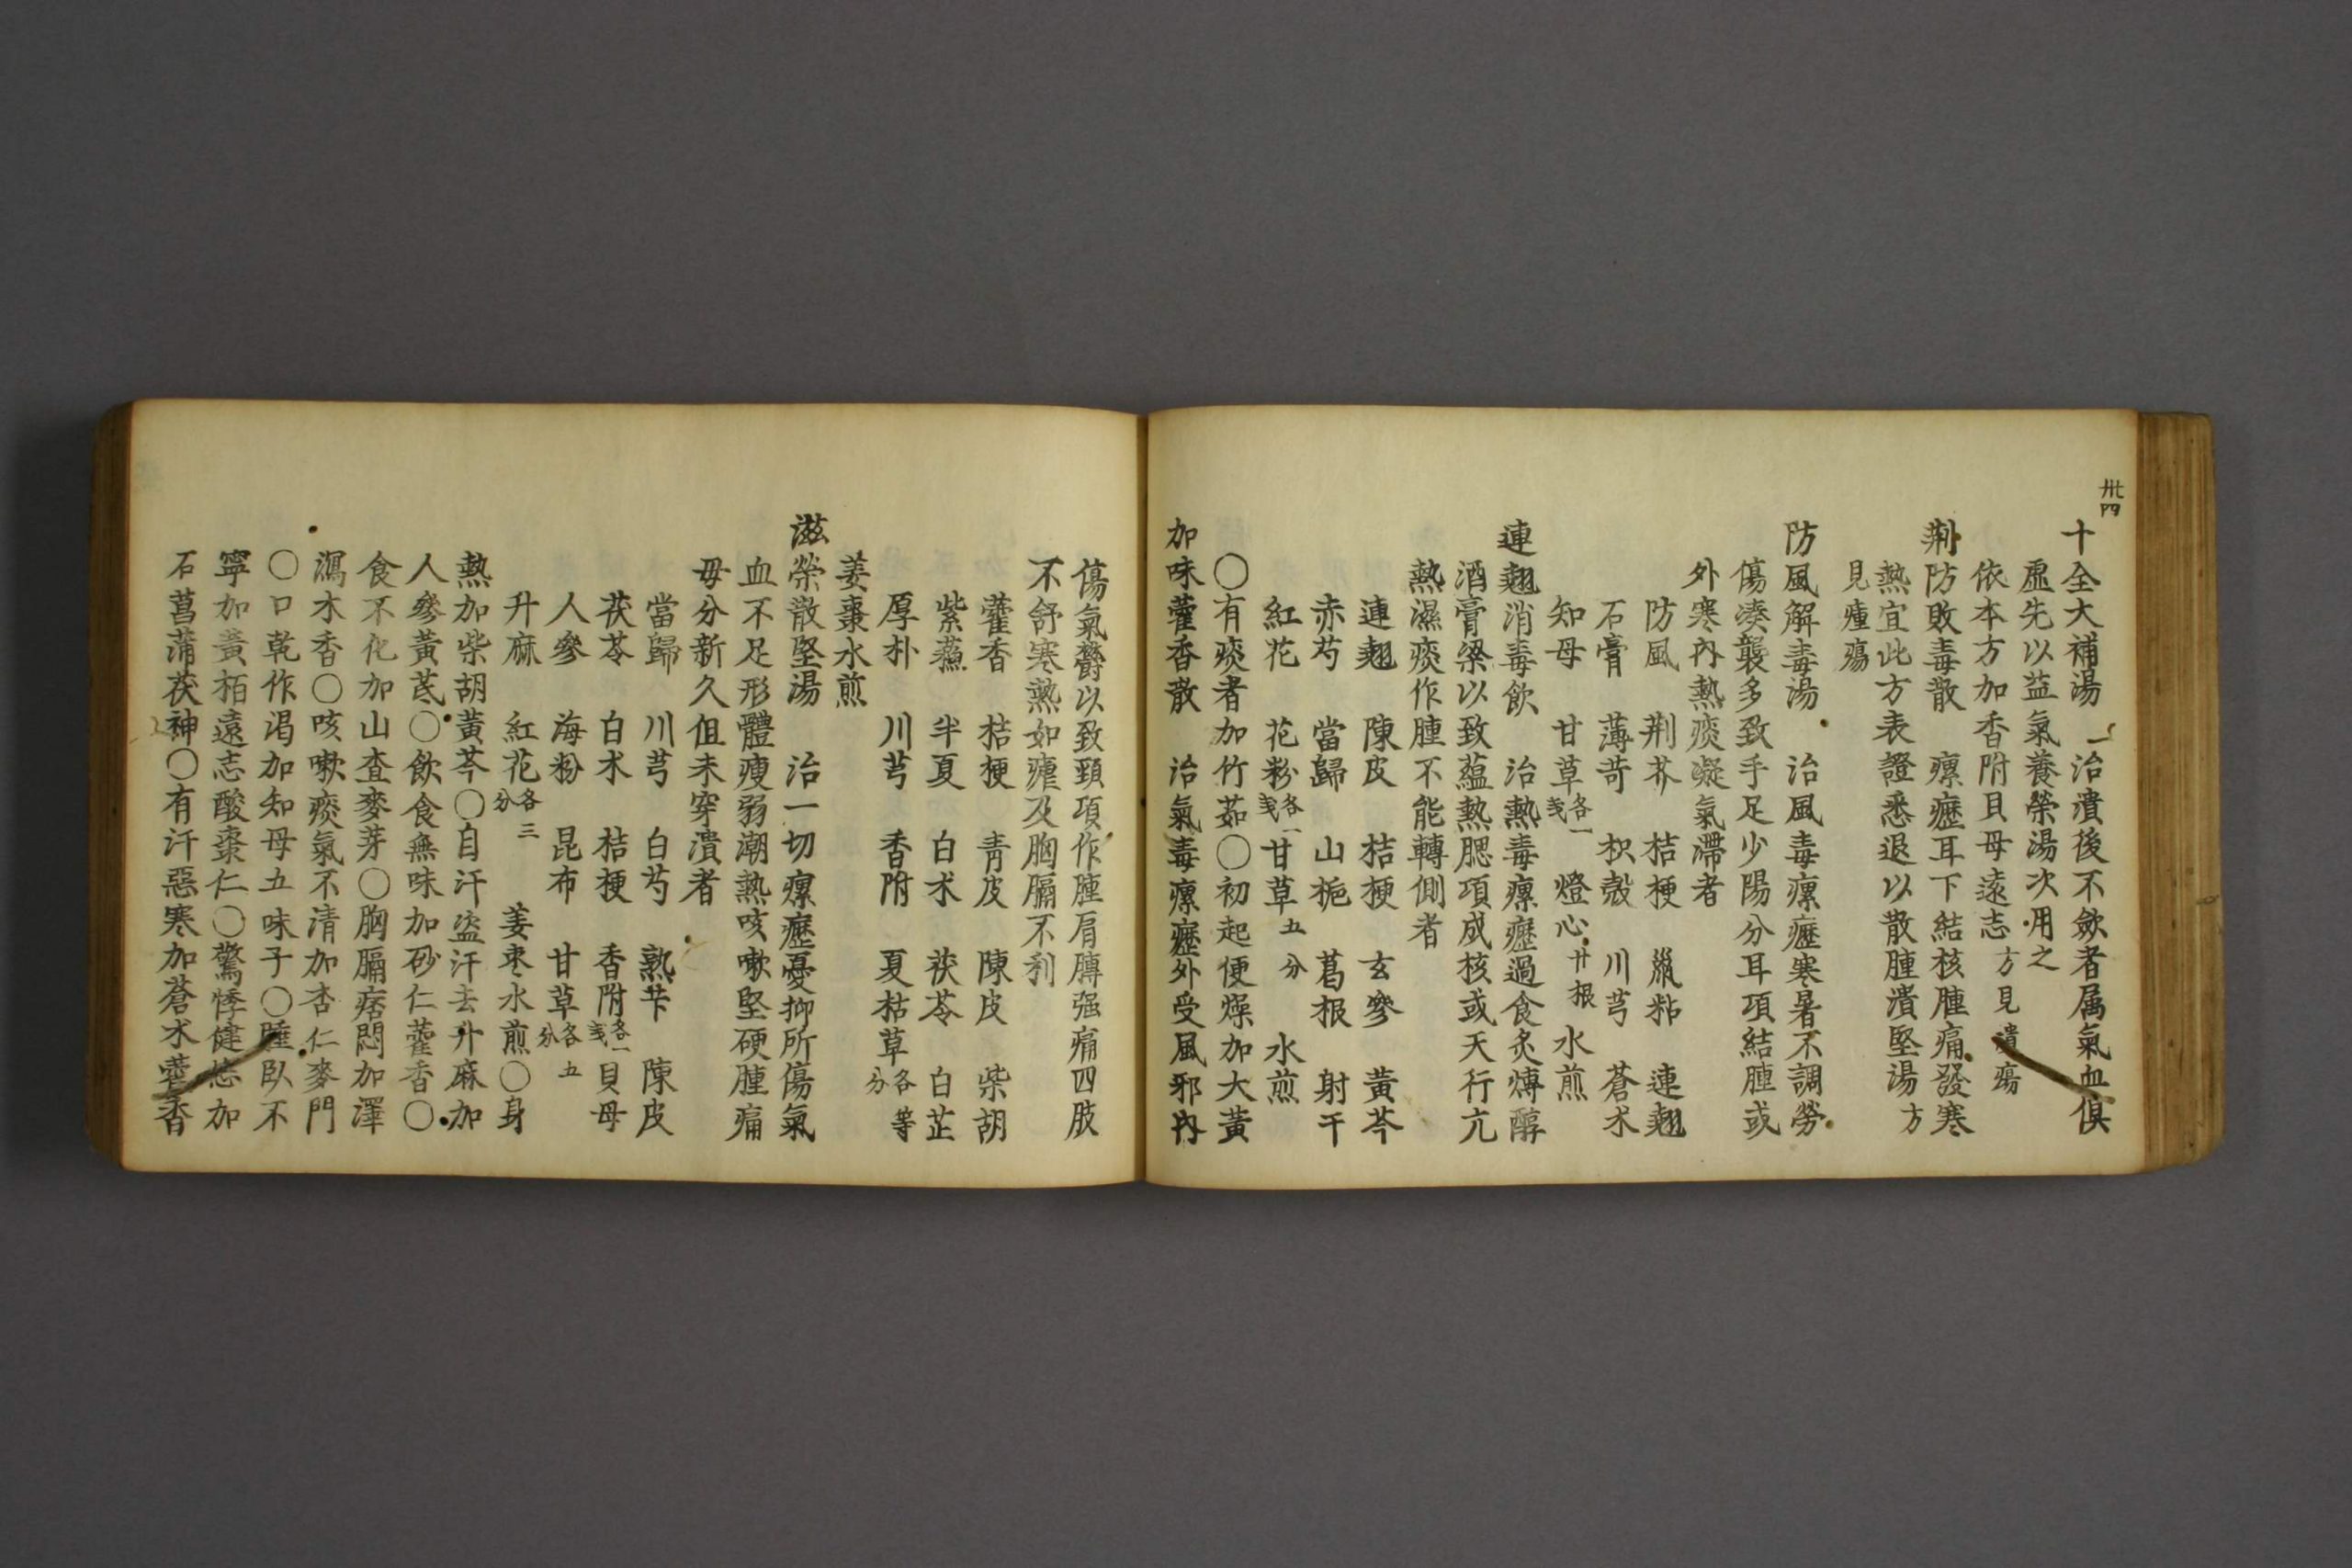 卅四
十全大補湯　治潰後不斂者属氣血俱
虛先以益氣養榮湯次用之
依本方加香附貝母遠志方見潰瘍
荆防敗毒散　瘰癧耳下結核腫痛發寒
熱宜此方表證悉退以散腫潰堅湯方
見瘇瘍
防風解毒湯　治風毒瘰癧寒暑不調勞
傷湊襲多致手足少陽分耳項結腫或
外寒內熱痰凝氣滯者
防風　荆芥　桔梗　鼠粘　連翹
石膏　薄苛　枳殼　川芎　蒼术
知母　甘草各一戋　燈心廿根　水煎
連翹消毒飲　治熱毒瘰癧過食炙煿醇
酒膏粱以致蘊熱腮項成核或天行亢
熱濕痰作腫不能轉側者
連翹　陳皮　桔梗　玄參　黃芩
赤芍　當歸　山梔　葛根　射干
紅花　花粉各一戋　甘草五分　水煎
〇有痰者加竹茹〇初起便燥加大黃
加味藿香散　治氣毒瘰癧外受風邪內
傷氣欝以致頸項作腫肩膊强痛四肢
不舒寒熱如瘧及胸膈不利
藿香　桔梗　靑皮　陳皮　柴胡
紫蘓　半夏　白术　茯苓　白芷
厚朴　川芎　香附　夏枯草各等分
姜棗水煎
滋榮散堅湯　治一切瘰癧憂抑所傷氣
血不足形體瘦弱潮熱咳嗽堅硬腫痛
毋分新久但未穿潰者
當歸　川芎　白芍　熟芐　陳皮
茯苓　白术　桔梗　香附各一戋　貝母
人參　海粉　昆布　甘草各五分
升麻　紅花各三分　姜枣水煎〇身
熱加柴胡黃芩〇自汗盜汗去升麻加
人參黃芪〇飲食無味加砂仁藿香〇
食不化加山査麥芽〇胸膈痞悶加澤
瀉木香〇咳嗽痰氣不清加杏仁麥門
〇口乾作渴加知母五味子〇睡臥不
寧加黃栢遠志酸棗仁〇驚悸健忘加
石菖蒲茯神〇有汗惡寒加蒼术藿香